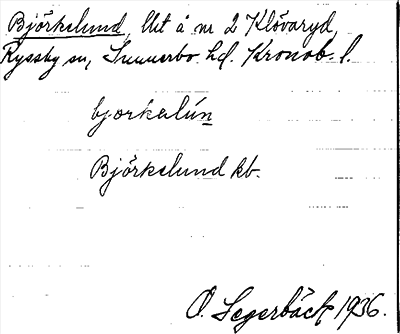 Björkelund, Ut å nr 2 Klövaryd,
Ryssby sn, Sunnerbo hd. Kronob. l.
bjorkalún
Björkelund kb.
O. Segerbäck 1936.